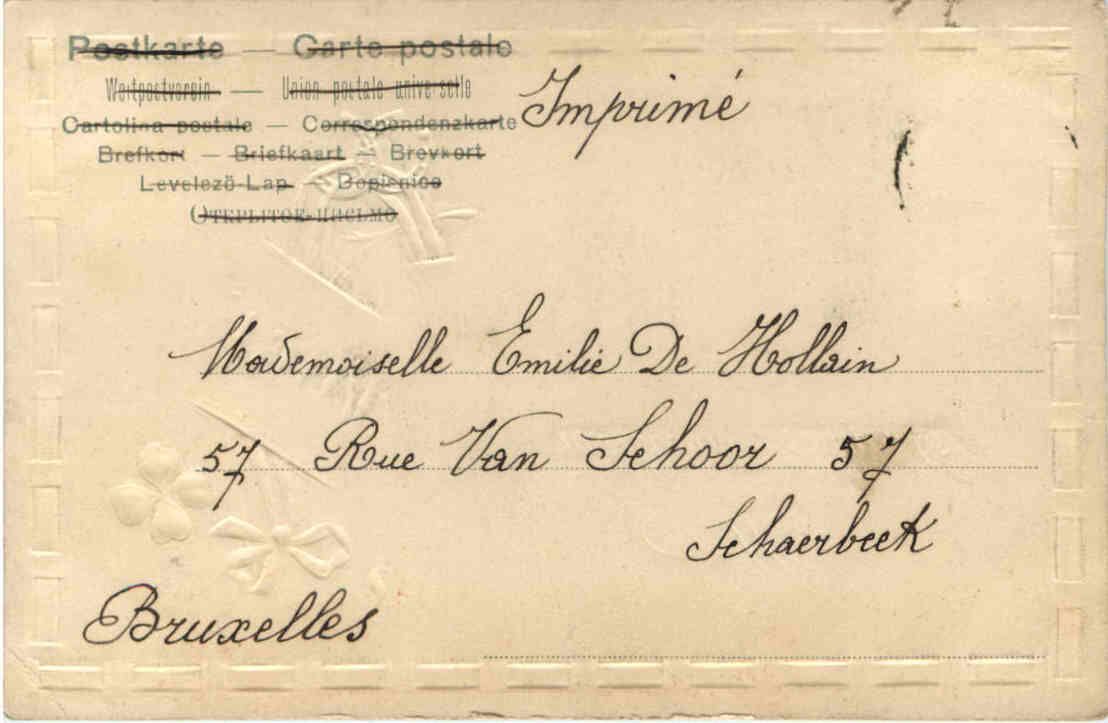 Postkarte — Carte postale
Weltpostverein — Union postale universelle
Cartolina postale — Correspondenzkarte
Brefkort — Briefkaart — Brevkort
Levelező-Lap — Dopisnice
Открытое письмо
Imprimé
Mademoiselle Emilie De Hollain
57 Rue Van Schoor 57
Schaerbeek
Bruxelles